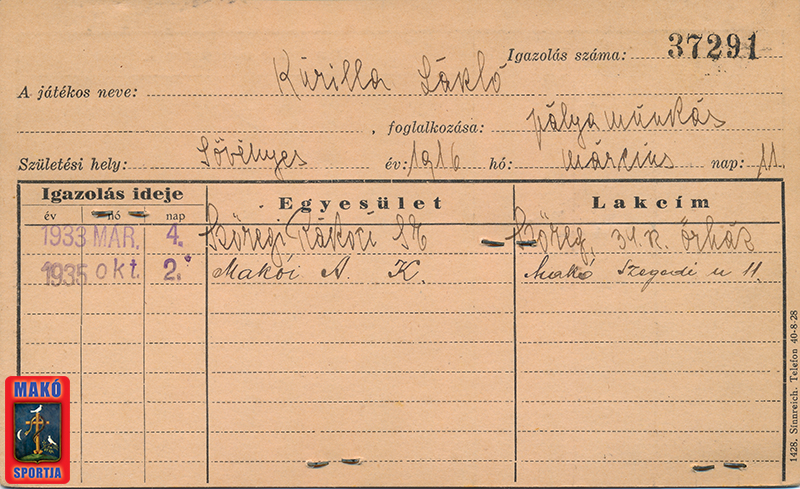 Igazolás száma: 37291
A játékos neve: Kurilla László
, foglalkozása: pályamunkás
Születési hely: Sövényes év: 1916 hó: március nap: 11.
Igazolás ideje Egyesület Lakcím
év hó nap
1933 MÁR. 4. Szőregi Rákóczi SE Szőreg, 34. k. őrház
1935 okt. 2. Makói A. K. Makó Szegedi u 11.
MAKÓ
SPORTJA
1428. Sinnreich. Telefon 40-8-28